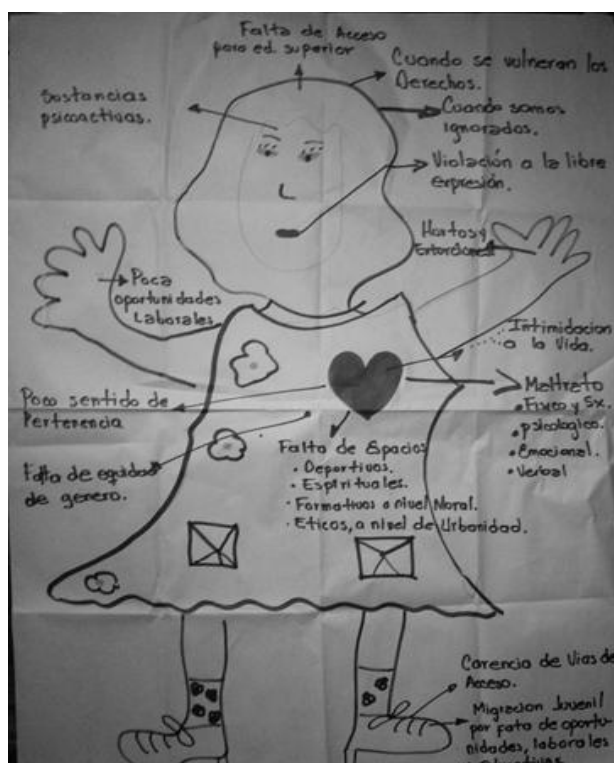 Falta de Acceso
para ed. superior
Cuando se vulneran los
Derechos.
Sustancias
psicoactivas.
Cuando somos
ignorados.
Violación a la libre
expresión.
Hurtos y
Extorciones
Poca
oportunidades
Laborales
Intimidacion
a la Vida.
Poco sentido de
Pertenencia
Maltrato
• Fisico y Sx.
• psicologico.
• Emocional
• Verbal
Falta de equidad
de genero.
Falta de Espacios
• Deportivos.
• Espirituales.
• Formativos a nivel Moral.
• Eticos, a nivel de Urbanidad.
Carencia de Vias de
Acceso.
Migracion Juvenil
por fata de oportu-
nidades, laborales